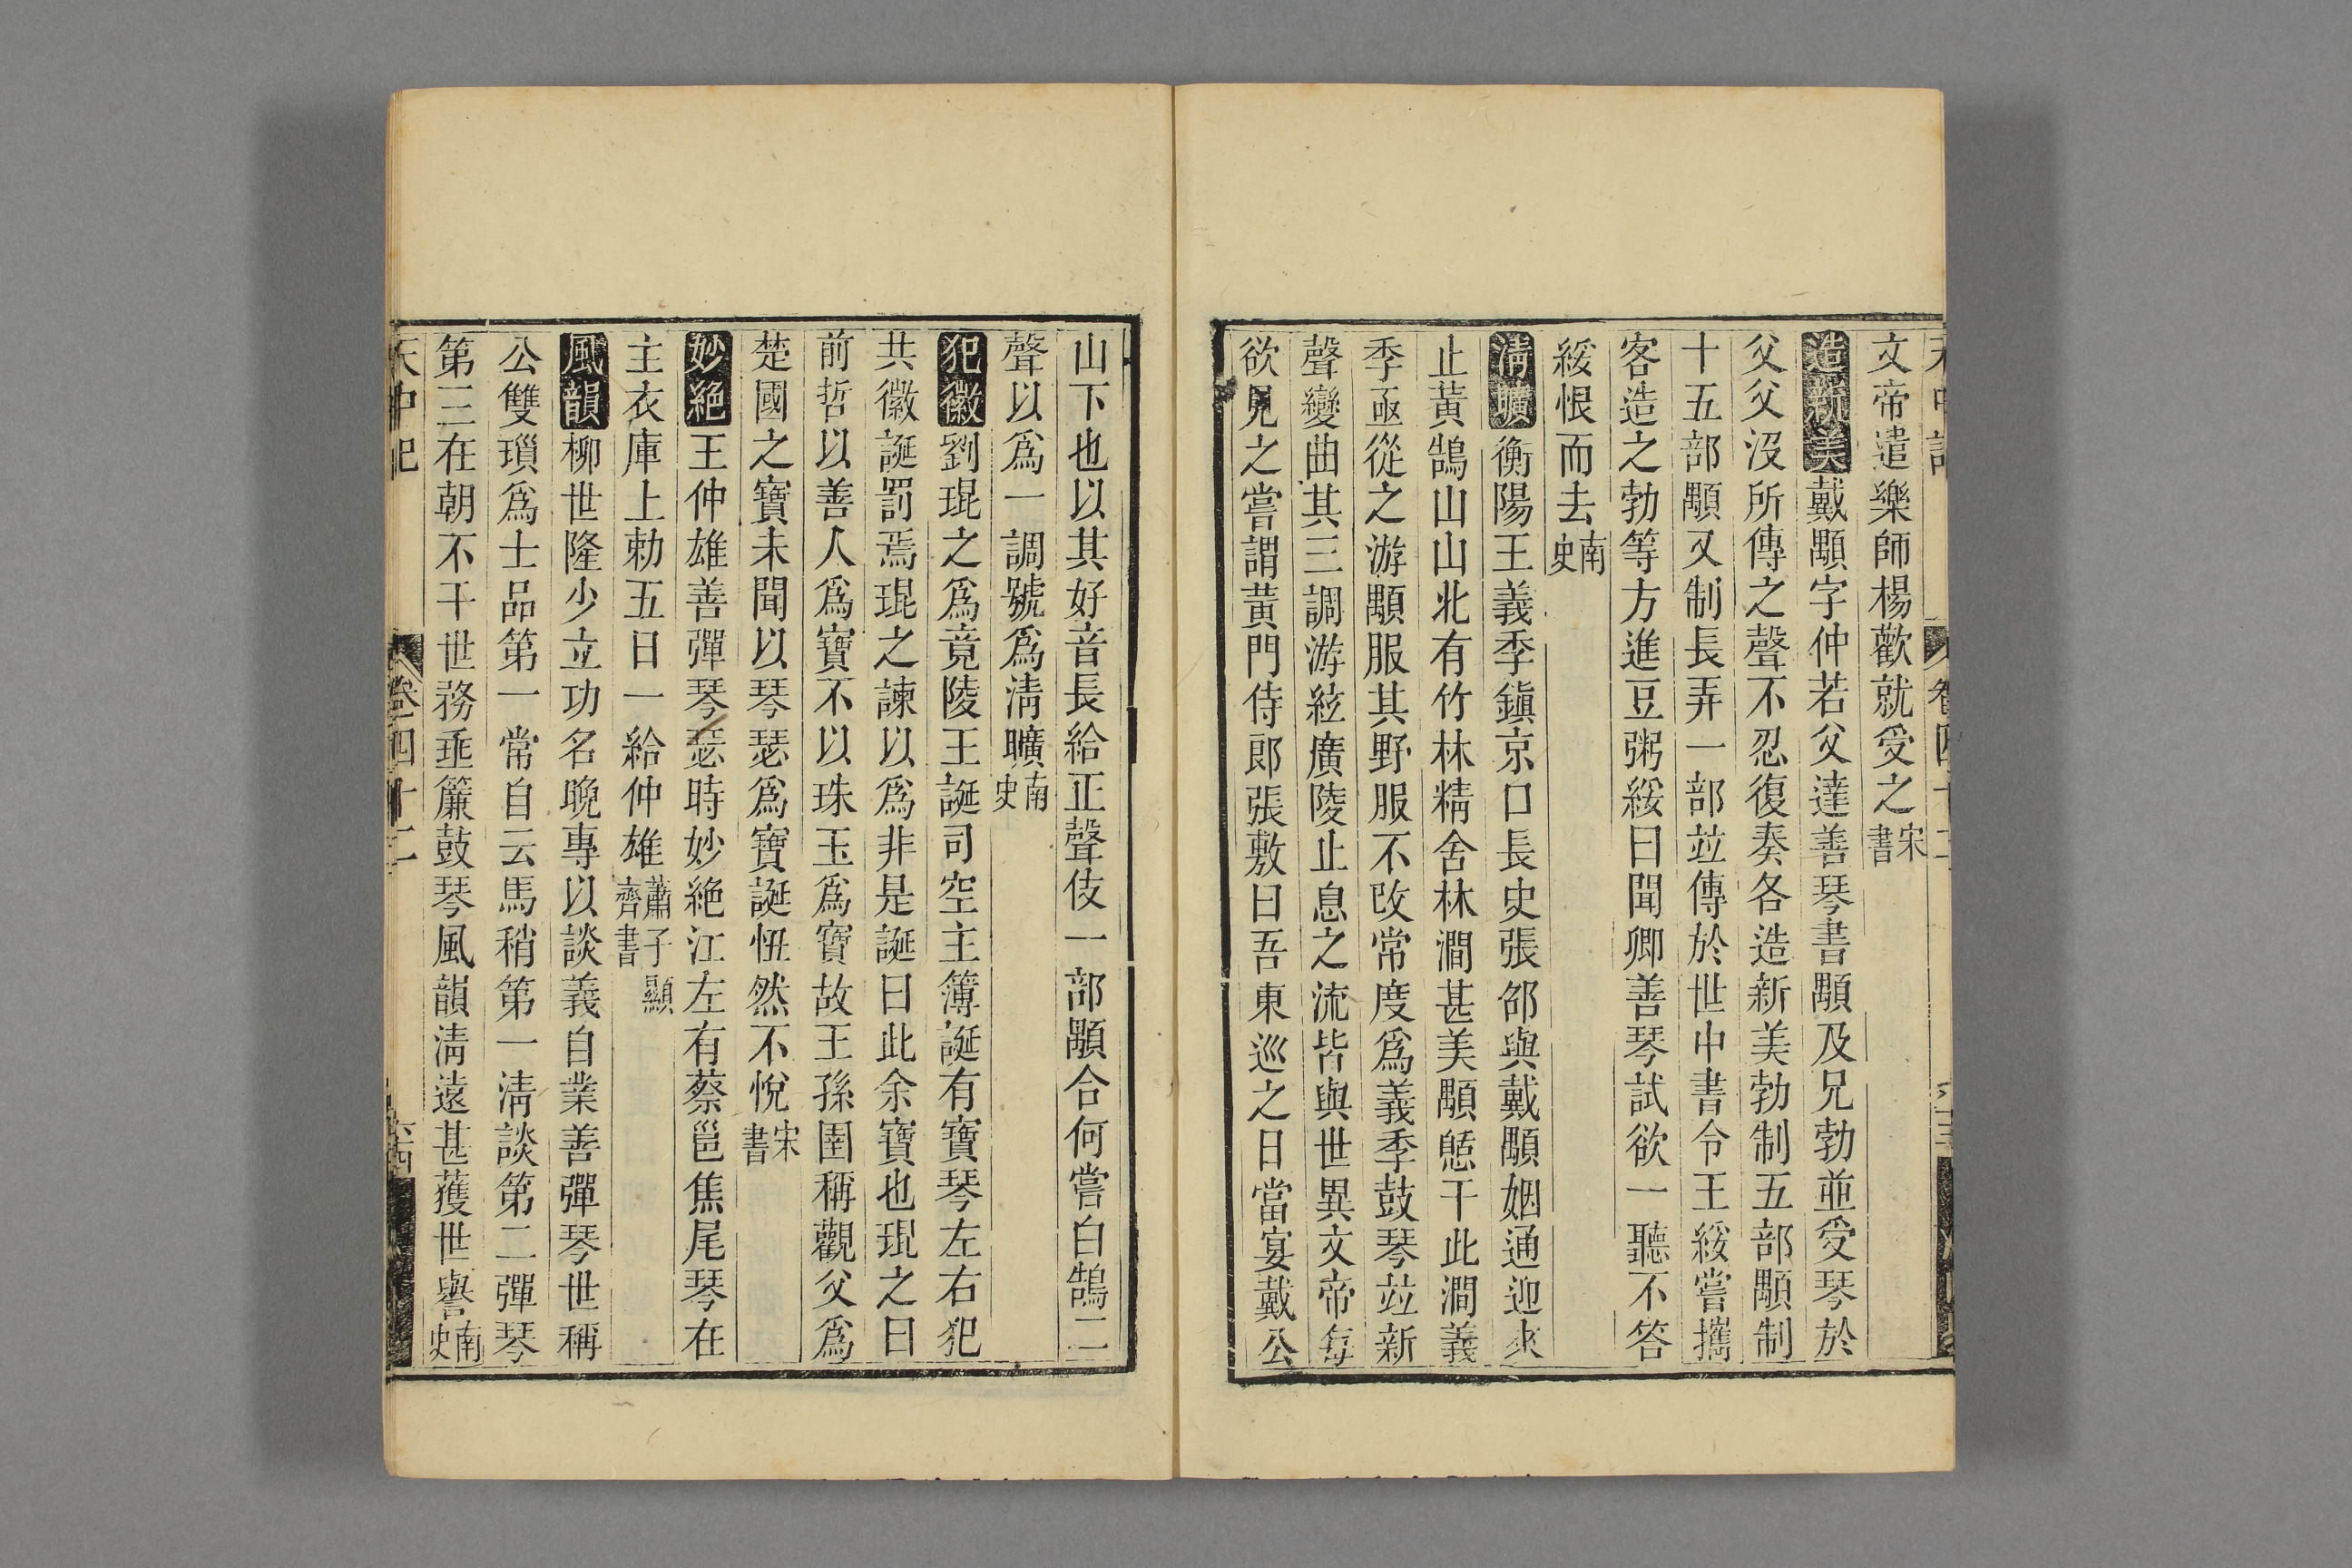 文帝遣樂師楊歡就受之宋書
造新美戴顒字仲若父達善琴書顒及兄勃並受琴於
父父沒所傳之聲不忍復奏各造新美勃制五部顒制
十五部顒又制長弄一部竝傳於世中書令王綏嘗攜
客造之勃等方進豆粥綏曰聞卿善琴試欲一聽不答
綏恨而去南史
淸曠衡陽王義季鎭京口長史張邵與戴顒姻通迎來
止黃鵠山山北有竹林精舍林澗甚美顒憩于此澗義
季亟從之游顒服其野服不改常度爲義季鼓琴竝新
聲變曲其三調游絃廣陵止息之流皆與世異文帝每
欲見之嘗謂黃門侍郎張敷曰吾東巡之日當宴戴公
山下也以其好音長給正聲伎一部顒合何嘗白鵠二
聲以爲一調號爲淸曠南史
犯徽劉琨之爲竟陵王誕司空主簿誕有寶琴左右犯
共徽誕罰焉琨之諫以爲非是誕曰此余寶也琨之曰
前哲以善人爲寶不以珠玉爲寶故王孫圉稱觀父爲
楚國之寶未聞以琴瑟爲寶誕忸然不悅宋書
妙絕王仲雄善彈琴瑟時妙絕江左有蔡邕焦尾琴在
主衣庫上勅五日一給仲雄蕭子顯齊書
風韻柳世隆少立功名晚專以談義自業善彈琴世稱
公雙璅爲士品第一常自云馬稍第一淸談第二彈琴
第三在朝不干世務垂簾鼓琴風韻淸遠甚獲世譽南史
天中記 卷四十二